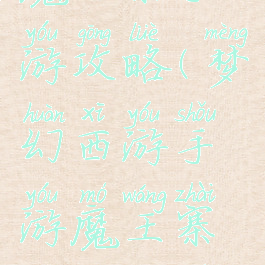 yóu gōng lüè mèng
游攻略(梦
huàn xī yóu shǒu
幻西游手
yóu mó wáng zhài
游魔王寨